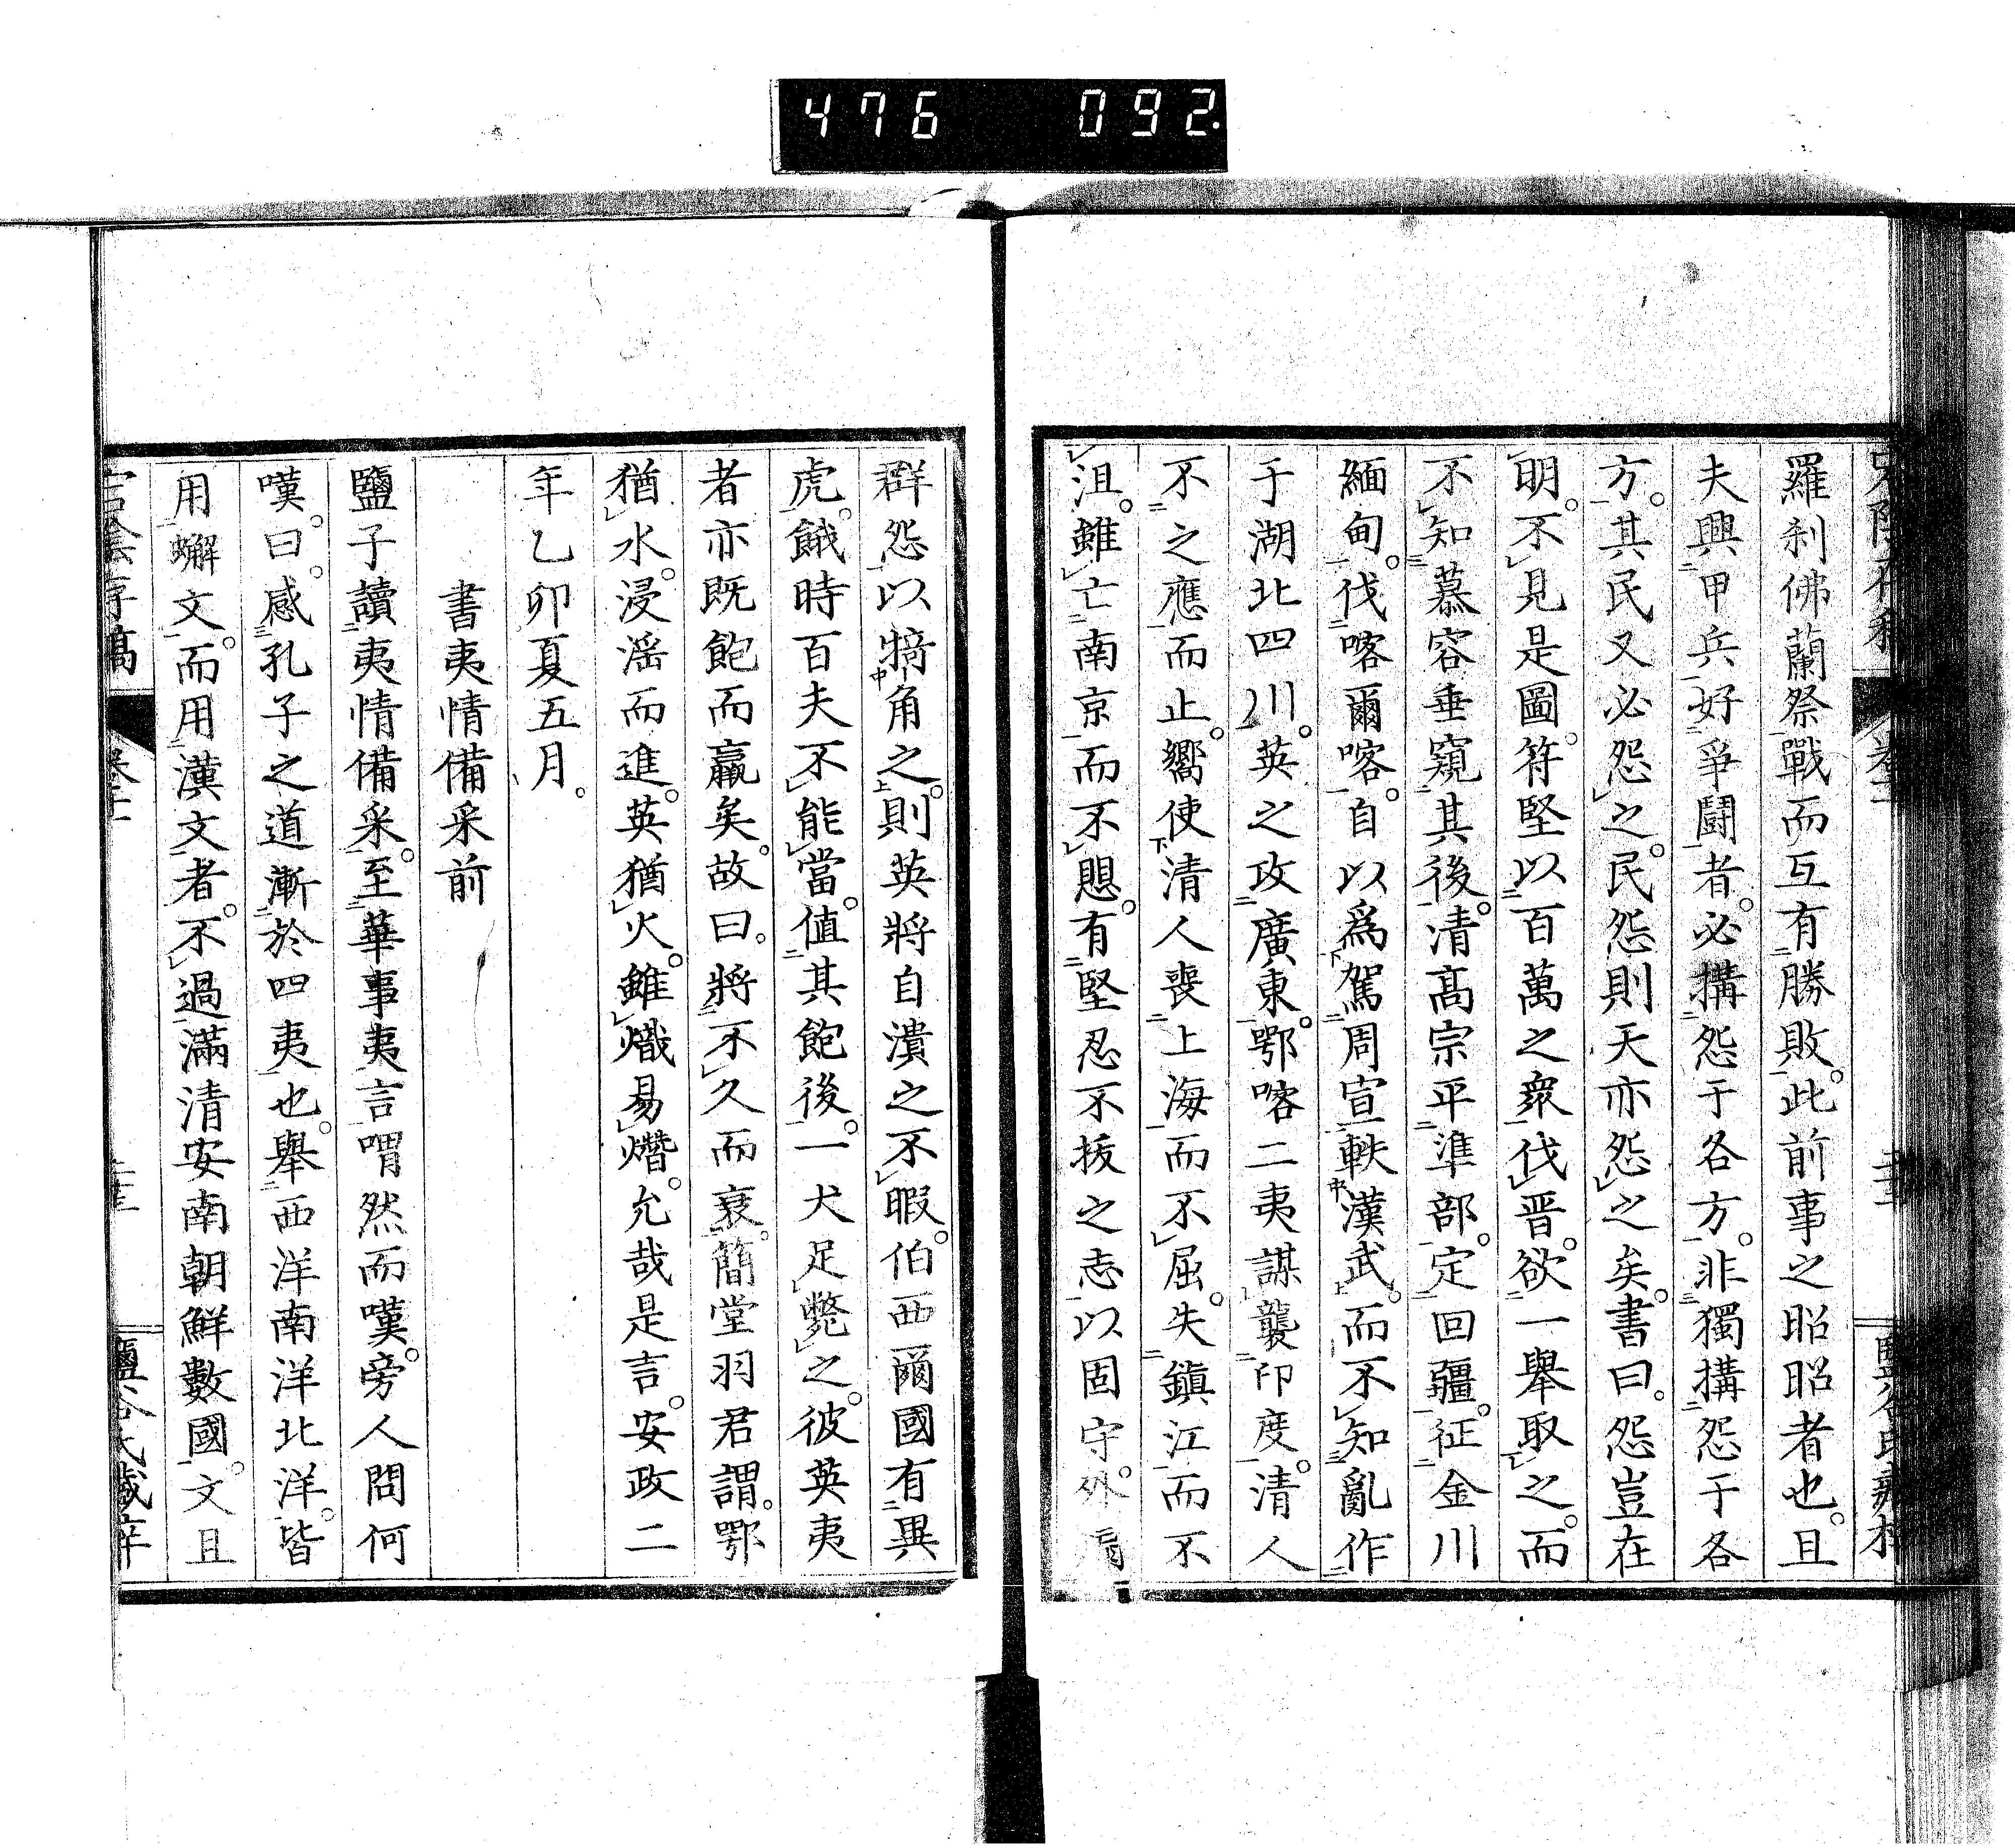 476 092.
羅刹佛蘭祭戰而互有勝敗。此前事之昭昭者也。且
夫興甲兵好爭鬪者。必搆怨于各方。非獨搆怨于各
方。其民又必怨之。民怨則天亦怨之矣。書曰。怨豈在
明。不見是圖。符堅以百萬之衆伐晋。欲一舉取之。而
不知慕容垂窺其後。清高宗平準部。定回疆。征金川
緬甸。伐喀爾喀。自以爲駕周宣軼漢武。而不知亂作
于湖北四川。英之攻廣東。鄂喀二夷謀襲印度。清人
不之應而止。嚮使清人喪上海而不屈。失鎮江而不
沮。雖亡南京而不愳。有堅忍不拔之志以固守。外
群怨以犄角之。則英將自潰之不暇。伯西爾國有異
虎。餓時百夫不能當。值其飽後。一犬足斃之。彼英夷
者亦既飽而贏矣。故曰。將不久而衰。簡堂羽君謂。鄂
猶水。浸滛而進。英猶火。雖熾易熸。允哉是言。安政二
年乙卯夏五月。
書夷情備采前
鹽子讀夷情備采。至華事夷言喟然而嘆。旁人問何
嘆。曰。感孔子之道漸於四夷也。舉西洋南洋北洋。皆
用蠏文。而用漢文者。不過滿清安南朝鮮數國。文且